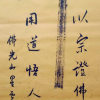 以宗證佛
用道悟人
佛光山星雲